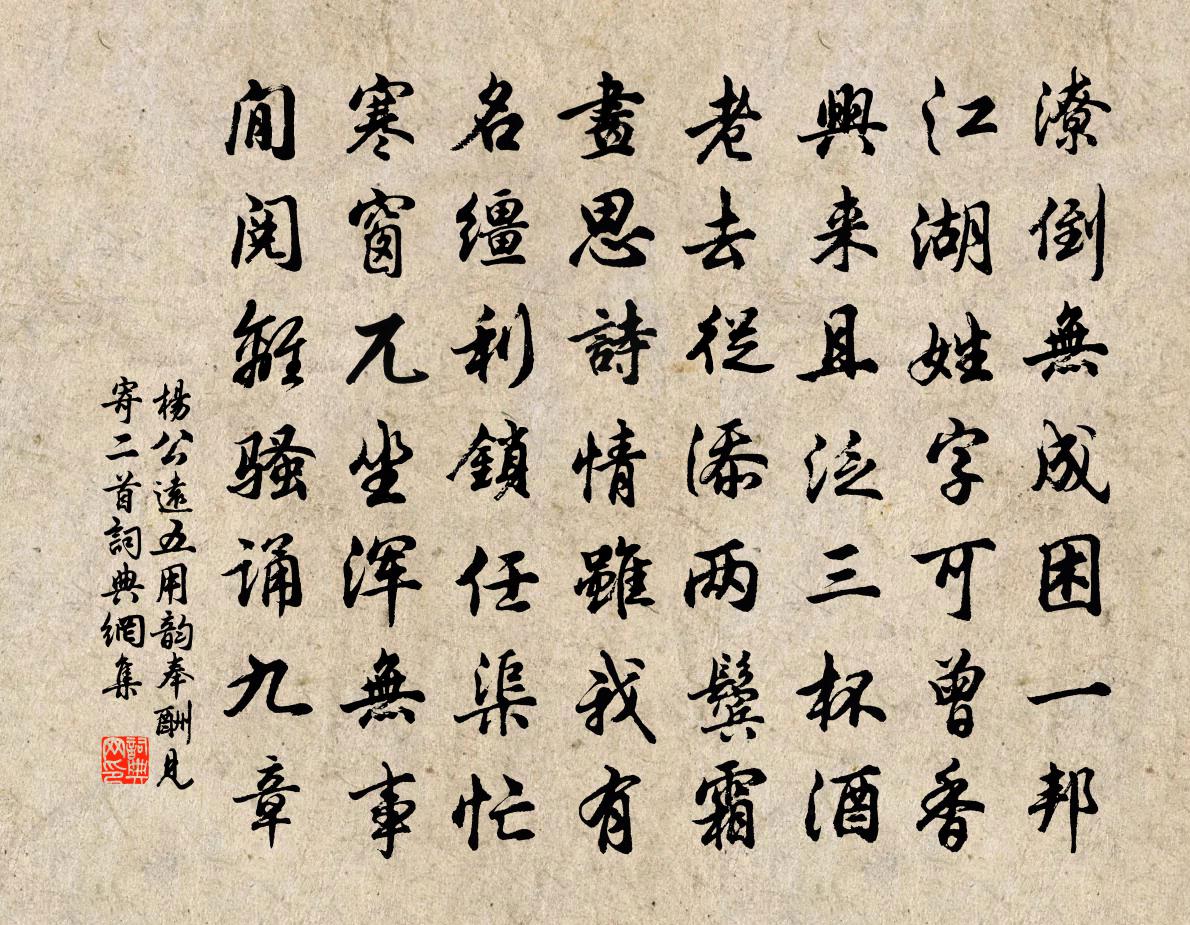 潦倒無成困一邦
江湖姓字可曾香
興来且泛三杯酒
老去從添兩鬢霜
畫思詩情雖我有
名韁利鎖任渠忙
寒窗兀坐渾無事
閒閱離騷誦九章
楊公遠五用韵奉酬見
寄二首詞典網集
詞典
网印